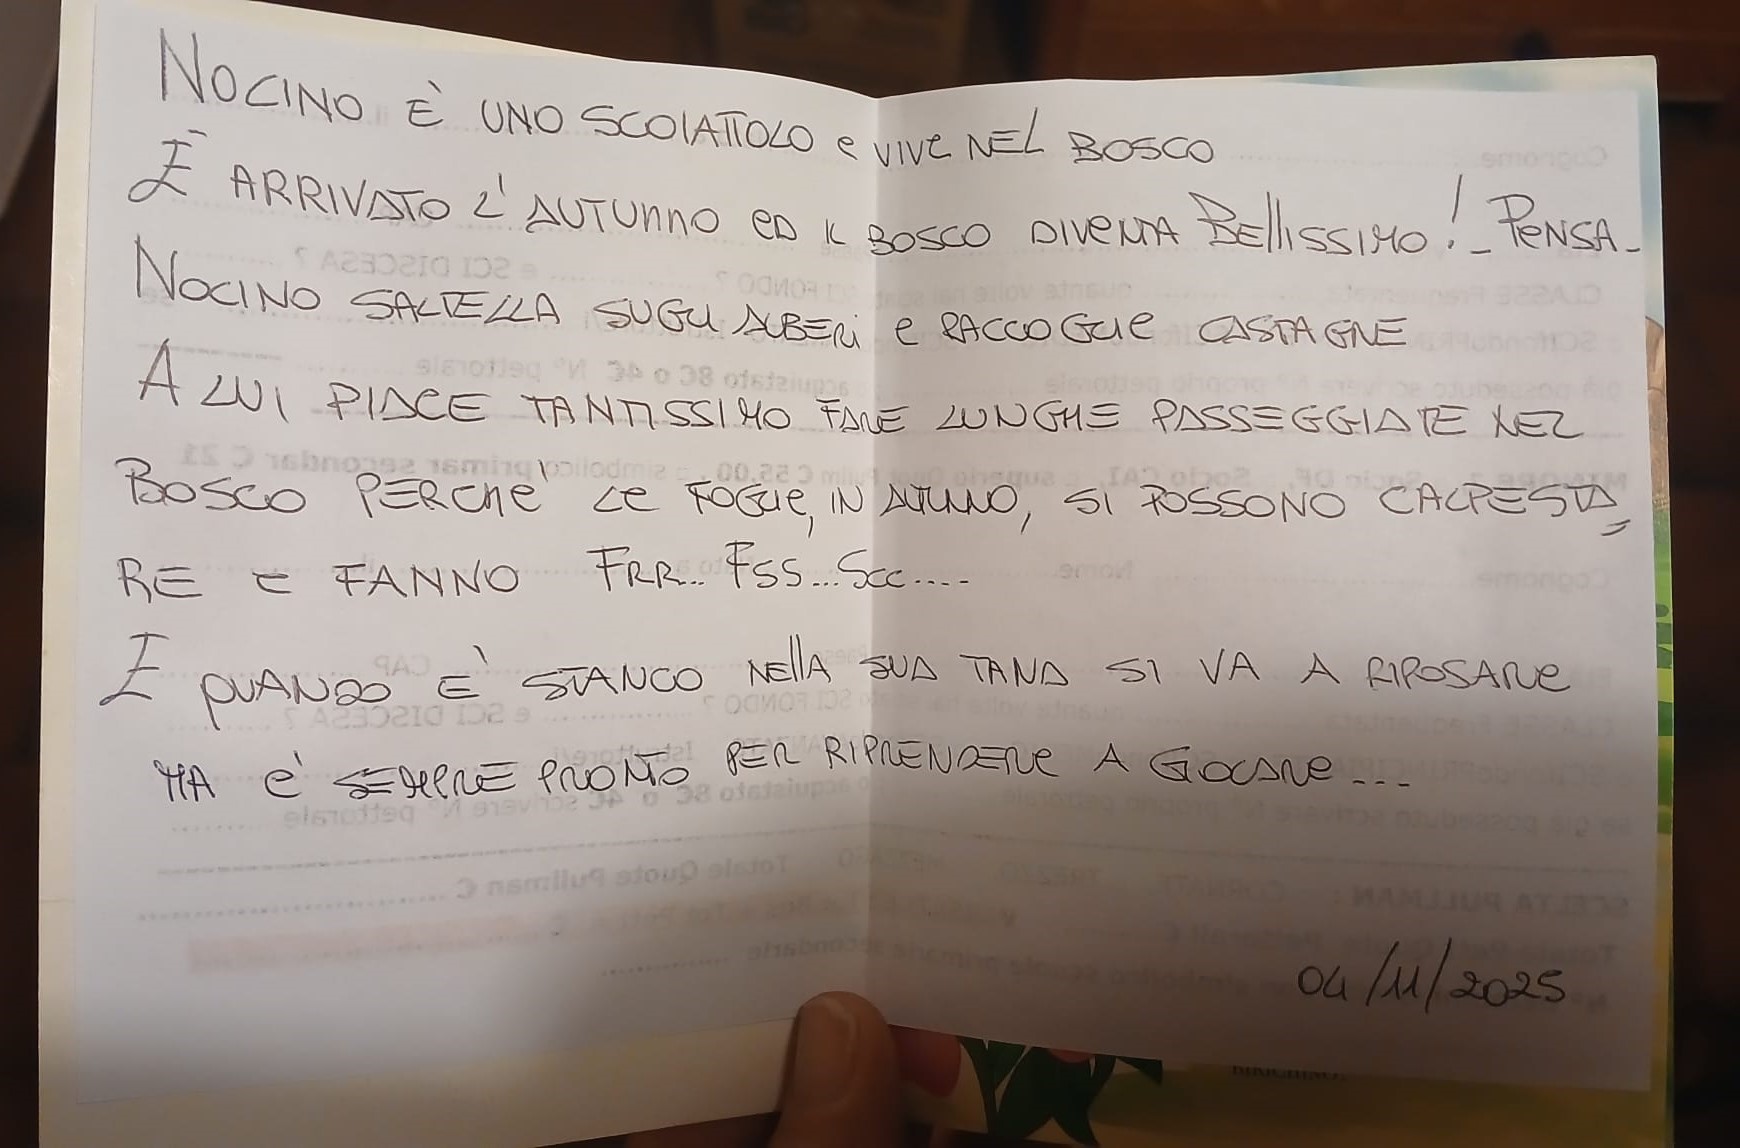 NOCINO È UNO SCOIATTOLO e VIVE NEL BOSCO
È ARRIVATO L'AUTUNNO ED IL BOSCO DIVENTA BELLISSIMO! - PENSA -
NOCINO SALTELLA SUGLI ALBERI e RACCOGLIE CASTAGNE
A LUI PIACE TANTISSIMO FARE LUNGHE PASSEGGIATE NEL
BOSCO PERCHE' LE FOGLIE, IN AUTUNNO, SI POSSONO CALPESTA=
RE E FANNO FRR... FSS... SCC....
E QUANDO È STANCO NELLA SUA TANA SI VA A RIPOSARE
MA E' SEMPRE PRONTO PER RIPRENDERE A GIOCARE...
04/11/2025